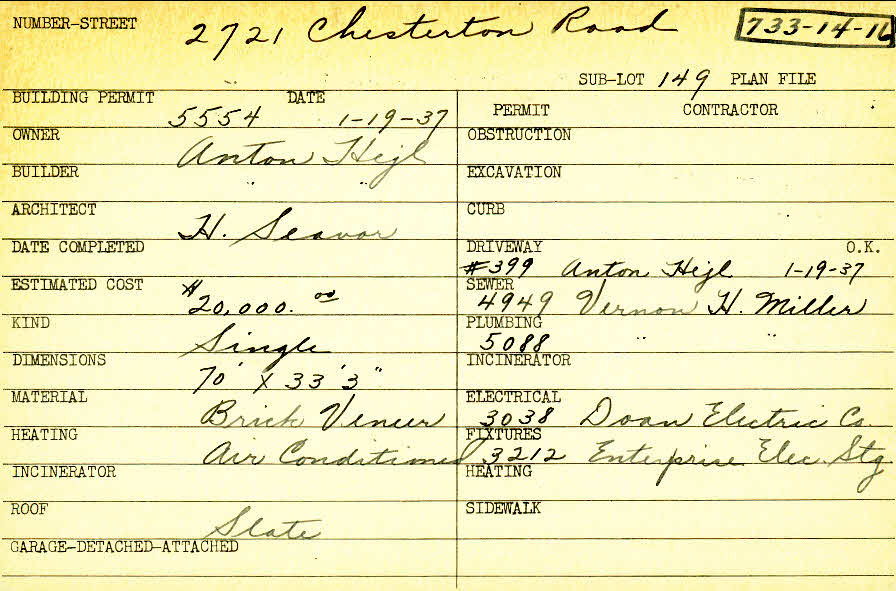 NUMBER-STREET 2721 Chesterton Road 733-14-16
SUB-LOT 149 PLAN FILE
BUILDING PERMIT 5554 DATE 1-19-37
PERMIT CONTRACTOR
OWNER Anton Hejl
OBSTRUCTION
BUILDER " "
EXCAVATION
ARCHITECT H. Seavor
CURB
DATE COMPLETED
DRIVEWAY #399 Anton Hejl 1-19-37 O.K.
ESTIMATED COST $20,000.00
SEWER 4949 Vernon H. Miller
KIND Single
PLUMBING 5088 " "
DIMENSIONS 70' X 33' 3"
INCINERATOR
MATERIAL Brick Veneer
ELECTRICAL 3038 Doan Electric Co.
HEATING Air Conditioned
FIXTURES 3212 Enterprise Elec. Stg
INCINERATOR
HEATING
ROOF Slate
SIDEWALK
GARAGE-DETACHED-ATTACHED